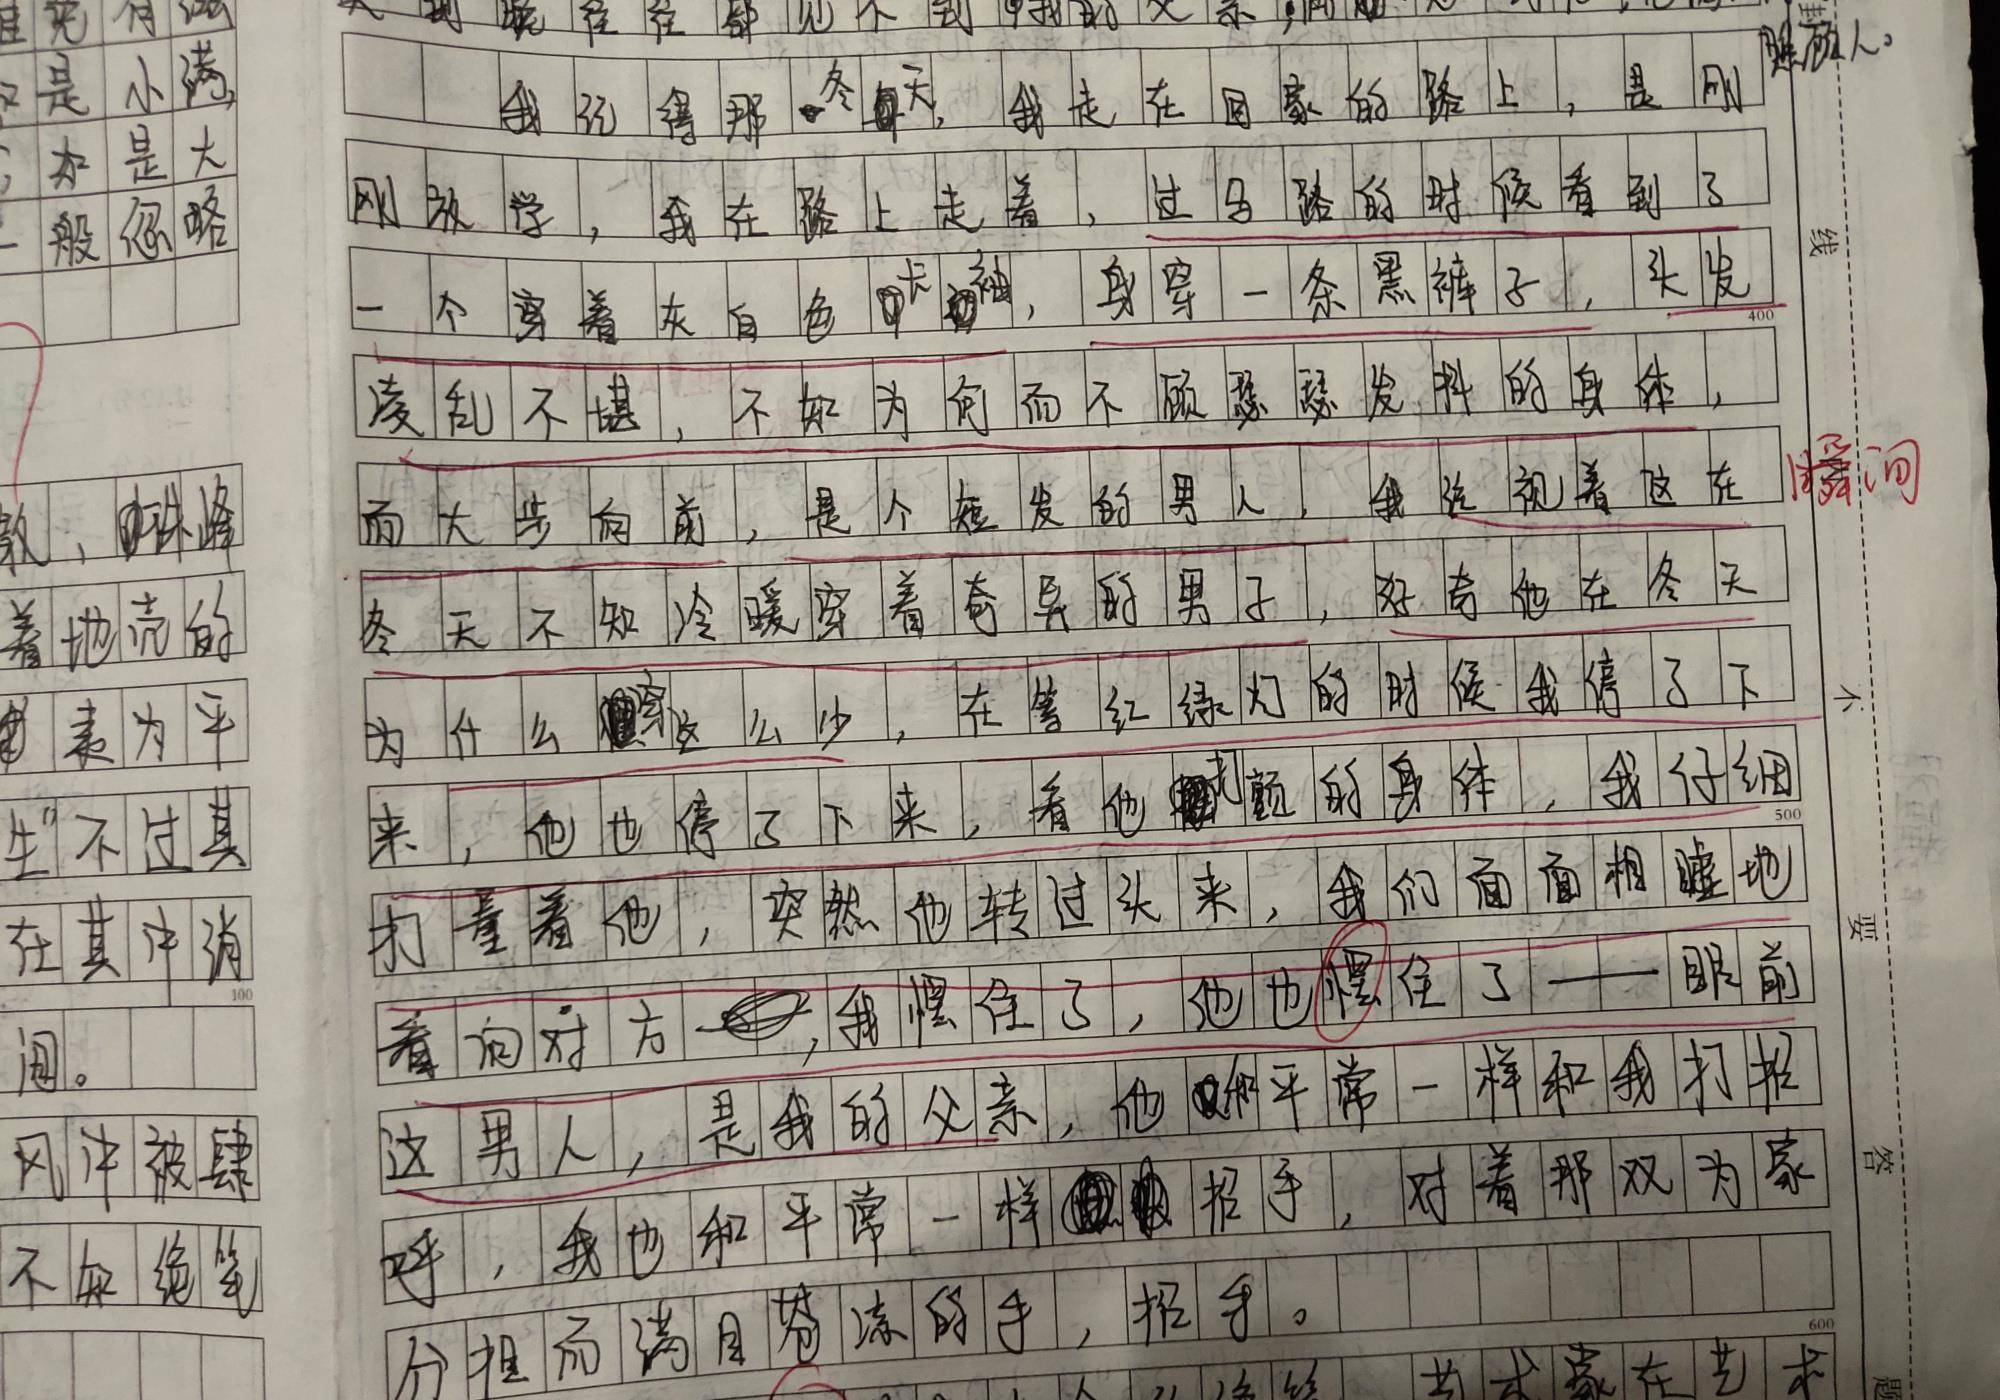 准究有
是小满,
亦是大
一般忽略
散,珠峰
着地壳的
表为平
生"不过其
在其中消
100
洄。
风中被肆
不知绝笔
我的父亲,
照顾人。
我记得那冬天,我走在回家的路上,是刚
刚放学,我在路上走着,过马路的时候看到了
一个穿着灰白色长袖,身穿一条黑裤子,头发
400
凌乱不堪,不知为何而不顾瑟瑟发抖的身体,
而大步向前,是个短发的男人,我注视着这在
瞬间
冬天不知冷暖穿着奇异的男子,好奇他在冬天
为什么穿这么少,在等红绿灯的时候我停了下
来,他也停了下来,看他打颤的身体,我仔细
500
打量着他,突然他转过头来,我们面面相嘘地
看向对方,我愣住了,他也愣住了——眼前
这男人,是我的父亲,他和平常一样和我打招
呼,我也和平常一样招手,对着那双为家
分担而满目苍凉的手,招手。
600
艺术家在艺术
封
线
不
要
答
题